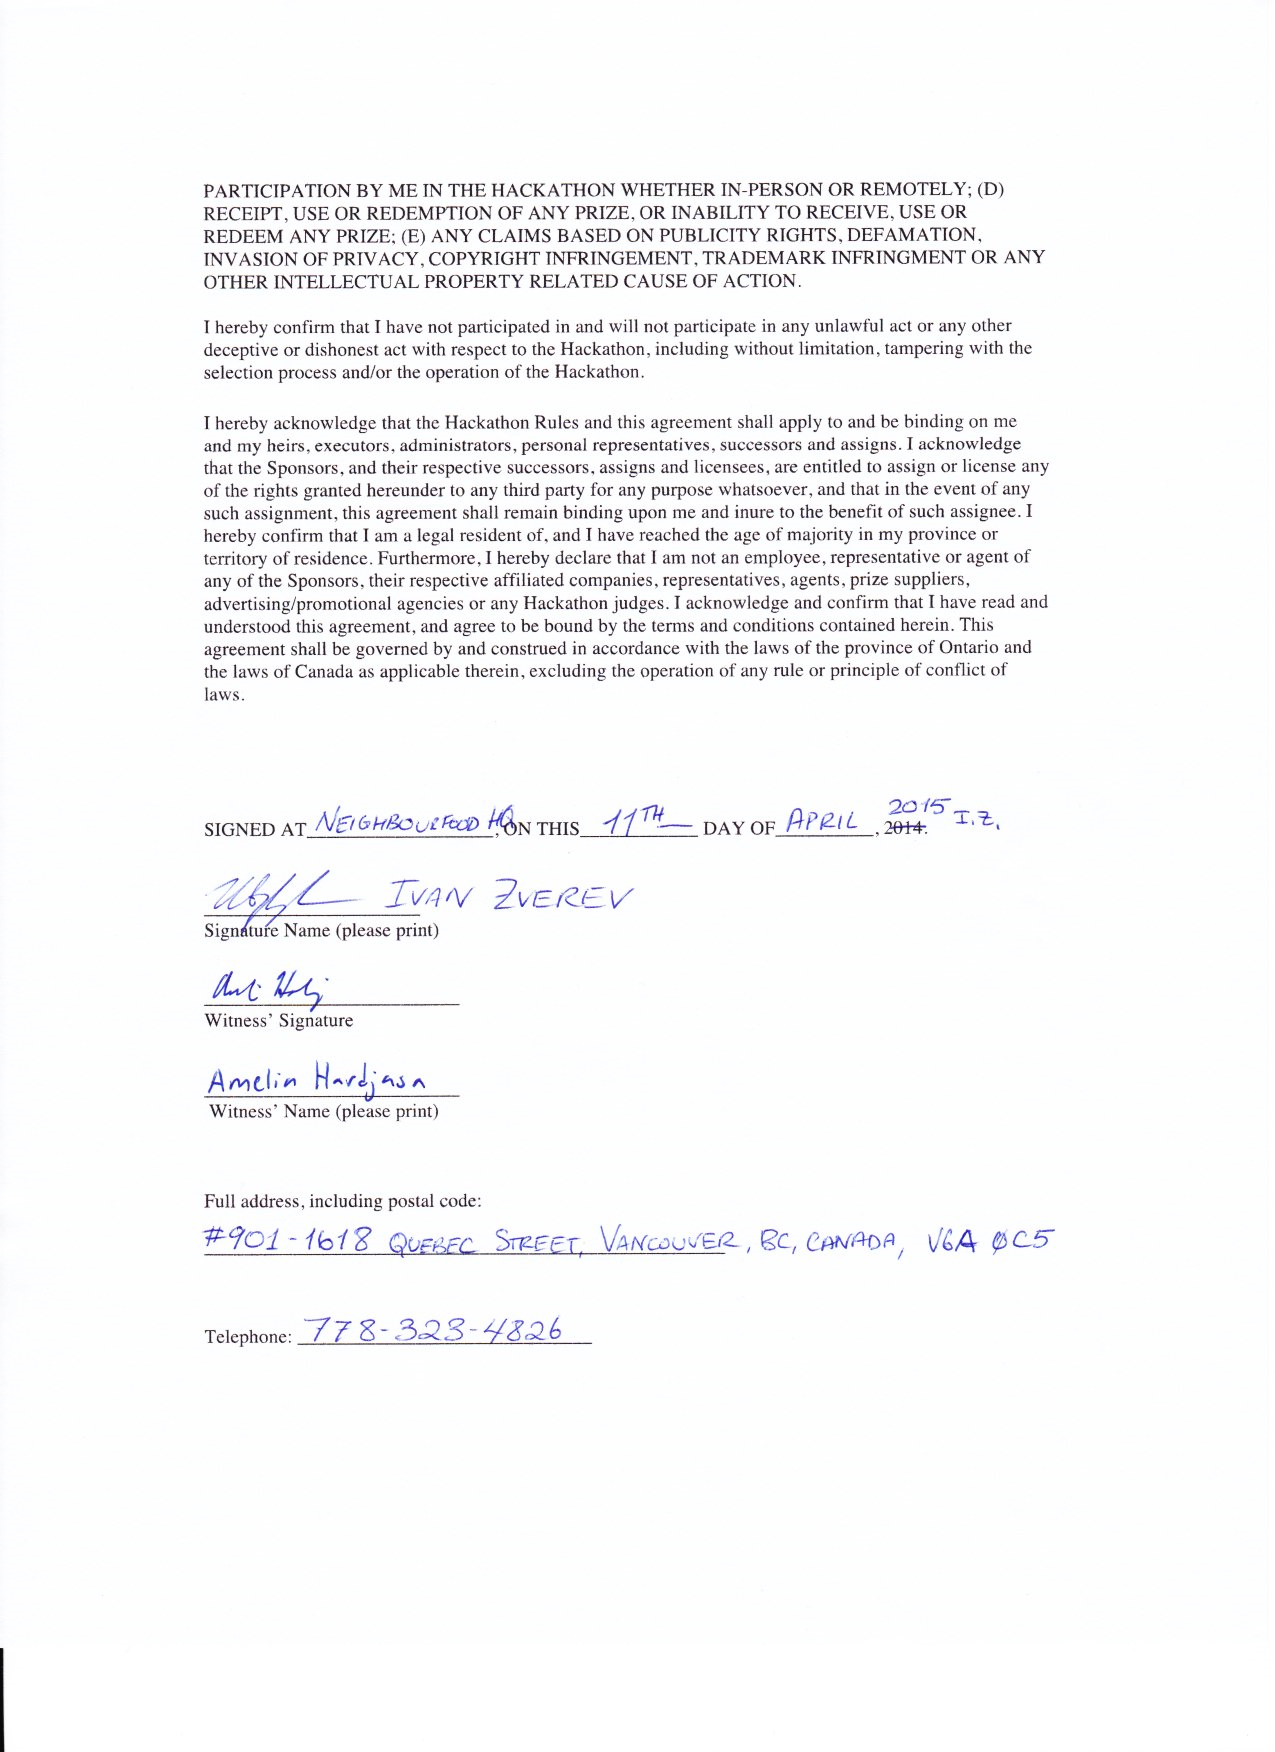 PARTICIPATION BY ME IN THE HACKATHON WHETHER IN-PERSON OR REMOTELY; (D)
RECEIPT, USE OR REDEMPTION OF ANY PRIZE, OR INABILITY TO RECEIVE, USE OR
REDEEM ANY PRIZE; (E) ANY CLAIMS BASED ON PUBLICITY RIGHTS, DEFAMATION,
INVASION OF PRIVACY, COPYRIGHT INFRINGEMENT, TRADEMARK INFRINGMENT OR ANY
OTHER INTELLECTUAL PROPERTY RELATED CAUSE OF ACTION.
I hereby confirm that I have not participated in and will not participate in any unlawful act or any other
deceptive or dishonest act with respect to the Hackathon, including without limitation, tampering with the
selection process and/or the operation of the Hackathon.
I hereby acknowledge that the Hackathon Rules and this agreement shall apply to and be binding on me
and my heirs, executors, administrators, personal representatives, successors and assigns. I acknowledge
that the Sponsors, and their respective successors, assigns and licensees, are entitled to assign or license any
of the rights granted hereunder to any third party for any purpose whatsoever, and that in the event of any
such assignment, this agreement shall remain binding upon me and inure to the benefit of such assignee. I
hereby confirm that I am a legal resident of, and I have reached the age of majority in my province or
territory of residence. Furthermore, I hereby declare that I am not an employee, representative or agent of
any of the Sponsors, their respective affiliated companies, representatives, agents, prize suppliers,
advertising/promotional agencies or any Hackathon judges. I acknowledge and confirm that I have read and
understood this agreement, and agree to be bound by the terms and conditions contained herein. This
agreement shall be governed by and construed in accordance with the laws of the province of Ontario and
the laws of Canada as applicable therein, excluding the operation of any rule or principle of conflict of
laws.
SIGNED AT NEIGHBOURFOOD HQ, ON THIS 11TH DAY OF APRIL, 2014. 2015 I.Z.
IVAN ZVEREV
Signature Name (please print)
Witness' Signature
Amelin Hardjasa
Witness' Name (please print)
Full address, including postal code:
#901-1618 QUEBEC STREET, VANCOUVER, BC, CANADA, V6A 0C5
Telephone: 778-323-4826